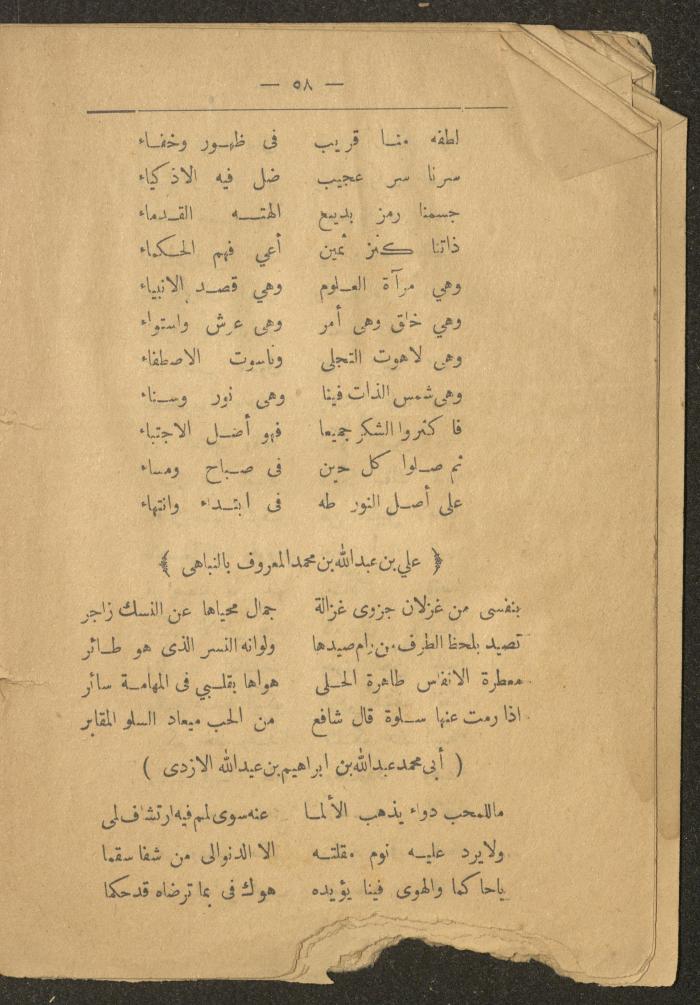 — ٥٨ —
لطفه منا قريب في ظهور وخفاء
سرنا سر عجيب ضل فيه الاذكياء
جسمنا رمز بديع الهته القدماء
ذاتنا كنز ثمين أعي فهم الحكماء
وهي مرآة العلوم وهي قصد الانبياء
وهي خلق وهى أمر وهى عرش واستواء
وهى لاهوت التجلى وناسوت الاصطفاء
وهى شمس الذات فينا وهى نور وسناء
فاكثروا الشكر جميعا فهو أضل الاجتباء
ثم صلوا كل حين فى صباح ومساء
على أصل النور طه فى ابتداء وانتهاء
﴿ علي بن عبدالله بن محمد المعروف بالنباهى ﴾
بنفسى من غزلان جزوى غزالة جمال محياها عن النسك زاجر
تصيد بلحظ الطرف من رام صيدها ولوانه النسر الذى هو طائر
معطرة الانفاس طاهرة الحلى هواها بقلبي فى المهامة سائر
اذا رمت عنها سلوة قال شافع من الحب ميعاد السلو المقابر
( أبى محمد عبدالله بن ابراهيم بن عبدالله الازدى )
ماللمحب دواء يذهب الألما عنه سوى لمم فيه ارتشاف لمى
ولايرد عليه نوم مقلته الا الدنوالى من شفا سقما
ياحاكما والهوى فينا يؤيده هوك فى بما ترضاه قدحكما